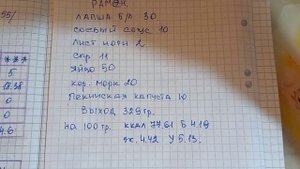 РАМЕН
ЛАПША Б/П 30
соевый соус 10
Лист нори 2
сыр 11
яйцо 50
кор. морк 20
Пекинская капуста 10
ВЫХОД 329гр.
на 100гр. ккал 77.61 Б 4.19
ж. 4.42 У 5.13.
55/
5
0
0